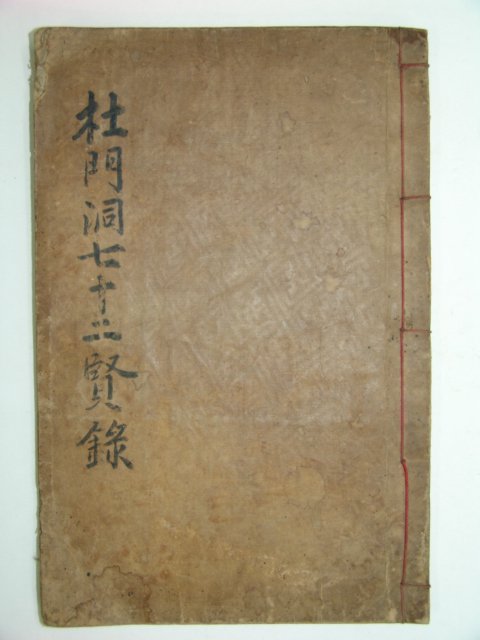 杜門洞七十二賢錄